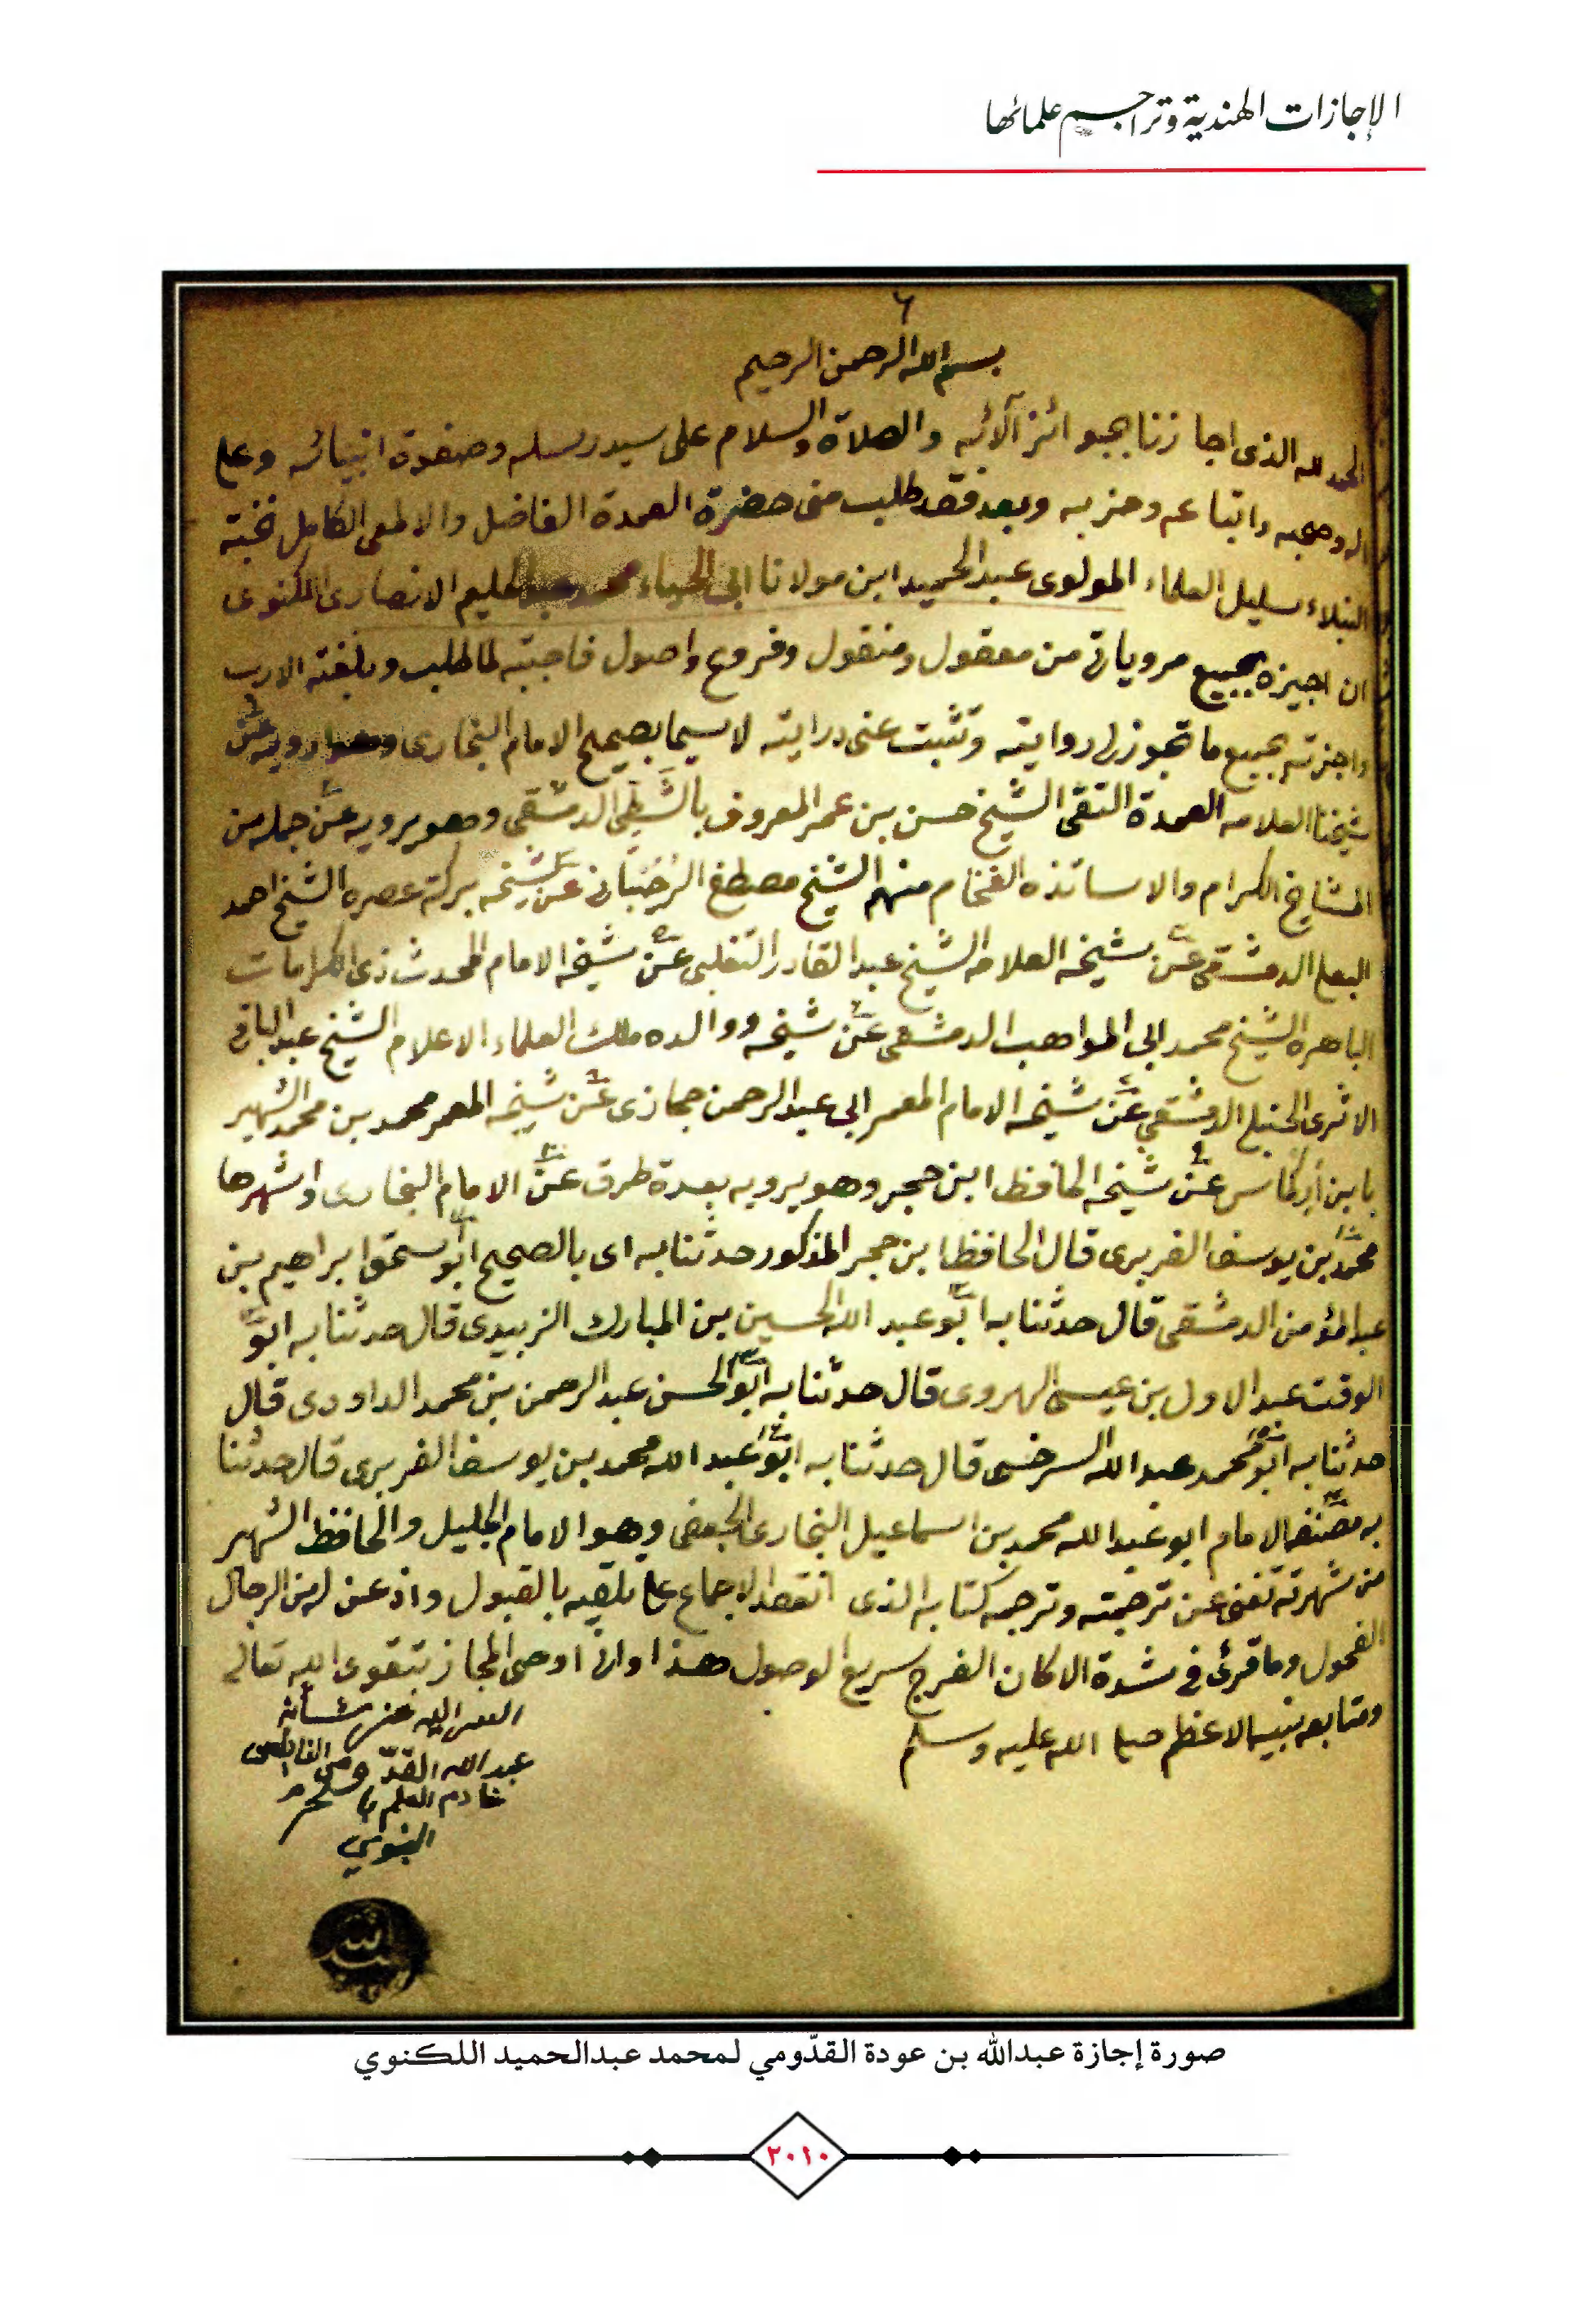 الإجازات الهندية وتراجم علمائها
٦
بسم الله الرحمن الرحيم
الحمد لله الذى اجازنا بجوائز آلائه والصلاة والسلام على سيد رسله وصفوة انبيائه وعلى
اله وصحبه واتباعه وحزبه وبعد فقد طلب منى حضرة العمدة الفاضل والالمعى الكامل نخبة
النبلاء سليل العلماء المولوى عبد الحميد ابن مولانا ابى الحياء محمد عبد الحليم الانصارى اللكنوى
ان اجيزه بجميع مروياتى من معقول ومنقول وفروع واصول فاجبته لما طلب وبلغته الارب
واجزته بجميع ما تجوز لى روايته وتثبت عنى درايته لا سيما بصحيح الامام البخارى ارويه عن
شيخنا العلامه العمدة التقى الشيخ حسن بن عمر المعروف بالشطى الدمشقى وهو يرويه عن جملة من
المشايخ الكرام والاساتذه الفخام منهم الشيخ مصطفى الرحيبانى عن شيخه بركة عصره الشيخ احمد
البعلى الدمشقى عن شيخه العلامه الشيخ عبد القادر التغلبى عن شيخه الامام المحدث ذى الكرامات
الباهره الشيخ محمد ابى المواهب الدمشقى عن شيخه ووالده ملك العلماء الاعلام الشيخ عبد الباقى
الاثرى الحنبلى الدمشقى عن شيخه الامام المعمر ابى عبد الرحمن حجازى عن شيخه المعمر محمد بن محمد الشهير
بابن اركماس عن شيخه الحافظ ابن حجر وهو يرويه بعدة طرق عن الامام البخارى واشهرها
محمد بن يوسف الفربرى قال الحافظ ابن حجر المذكور حدثنا به اى بالصحيح ابو اسحق ابراهيم بن
عبد المؤمن الدمشقى قال حدثنا به ابو عبد الله الحسين بن المبارك الزبيدى قال حدثنا به ابو
الوقت عبد الاول بن عيسى الهروى قال حدثنا به ابو الحسن عبد الرحمن بن محمد الداودى قال
حدثنا به ابو محمد عبد الله السرخسى قال حدثنا به ابو عبد الله محمد بن يوسف الفربرى قال حدثنا
به مصنفه الامام ابو عبد الله محمد بن اسماعيل البخارى الجعفى وهو الامام الجليل والحافظ الشهير
من شهرته تغنى عن ترجمته وترجمه كتابه الذى انعقد الاجماع على تلقيه بالقبول واذعن له من الرجال
الفحول وما قرئ فى شدة الا كان الفرج سريع الوصول هذا وانى اوصى المجاز بتقوى الله تعالى
ومتابعه نبيه الاعظم صلى الله عليه وسلم
الفقير اليه عز شأنه
عبد الله القدّومى النابلسى
خادم العلم بالحرم
النبوي
صورة إجازة عبدالله بن عودة القدّومي لمحمد عبدالحميد اللكنوي
٢٠١٠